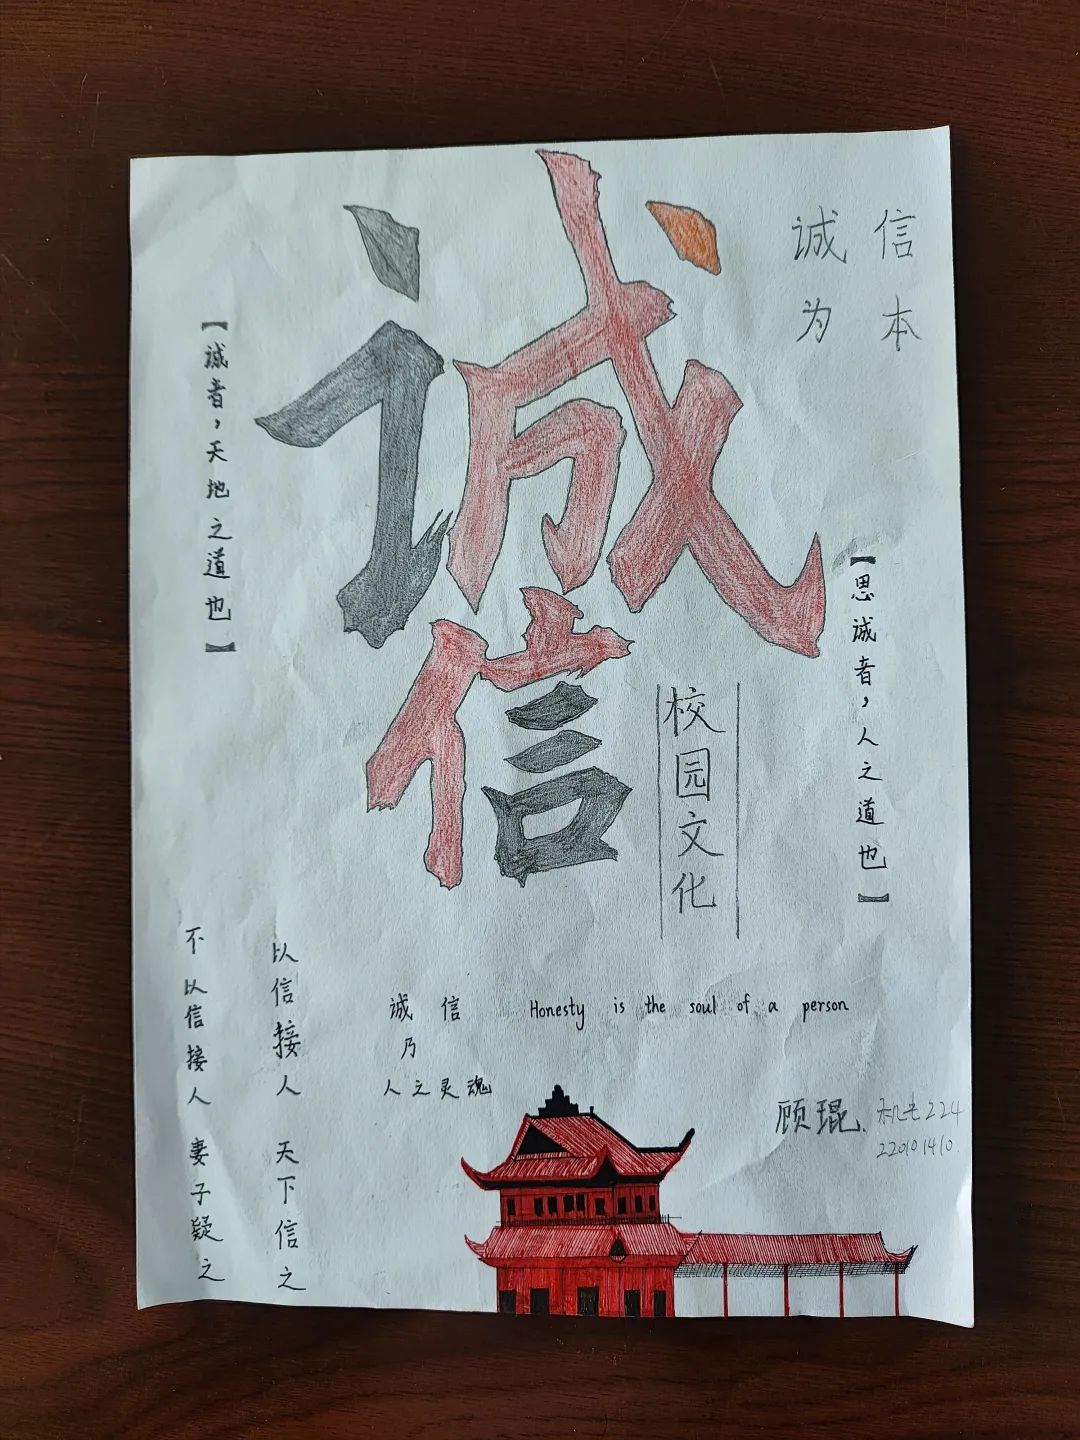 诚信
诚信
为本
【诚者，天地之道也】
【思诚者，人之道也】
校园文化
以信接人 天下信之
不以信接人 妻子疑之
诚信
乃
人之灵魂
Honesty is the soul of a person
顾琨.
224
220101410